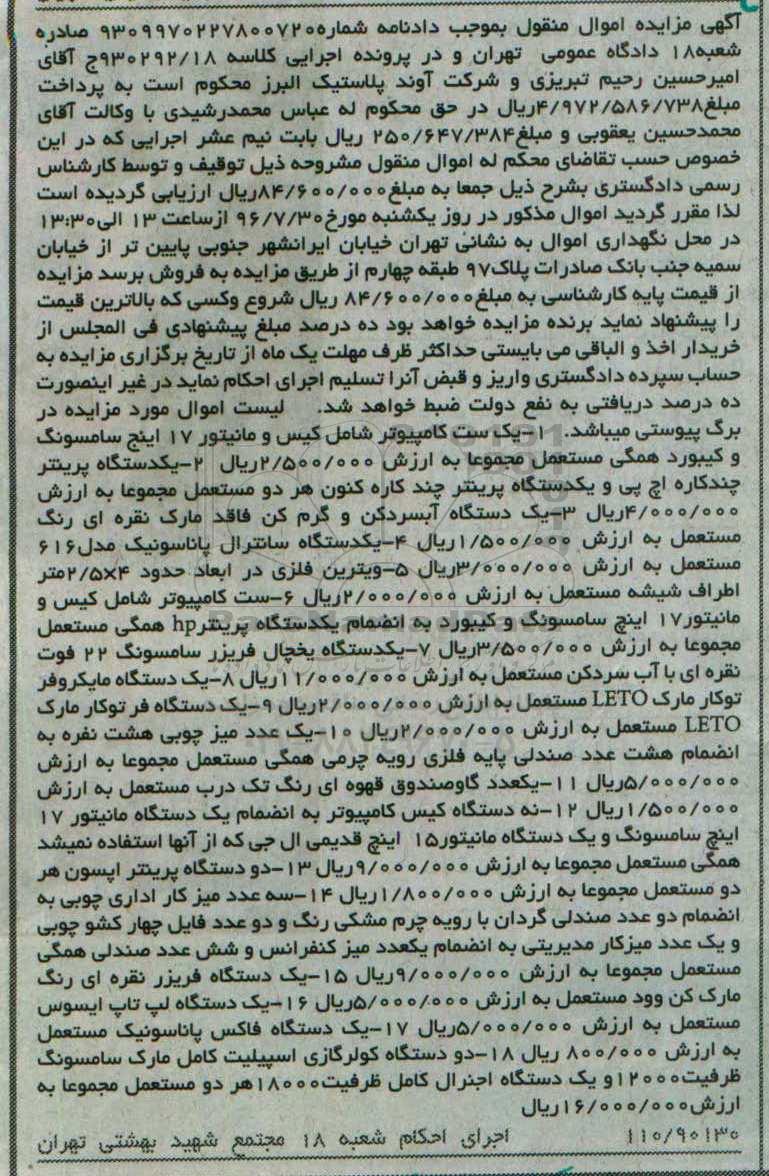 آگهی مزایده اموال منقول بموجب دادنامه شماره۹۳۰۹۹۷۰۲۲۷۸۰۰۷۲۰ صادره
شعبه۱۸ دادگاه عمومی تهران و در پرونده اجرایی کلاسه ۹۳۰۲۹۲/۱۸ج آقای
امیرحسین رحیم تبریزی و شرکت آوند پلاستیک البرز محکوم است به پرداخت
مبلغ۴/۹۷۲/۵۸۶/۷۳۸ریال در حق محکوم له عباس محمدرشیدی با وکالت آقای
محمدحسین یعقوبی و مبلغ۲۵۰/۶۴۷/۳۸۴ ریال بابت نیم عشر اجرایی که در این
خصوص حسب تقاضای محکم له اموال منقول مشروحه ذیل توقیف و توسط کارشناس
رسمی دادگستری بشرح ذیل جمعا به مبلغ۸۴/۶۰۰/۰۰۰ریال ارزیابی گردیده است
لذا مقرر گردید اموال مذکور در روز یکشنبه مورخ۹۶/۷/۳۰ ازساعت ۱۳ الی۱۳:۳۰
در محل نگهداری اموال به نشانی تهران خیابان ایرانشهر جنوبی پایین تر از خیابان
سمیه جنب بانک صادرات پلاک۹۷ طبقه چهارم از طریق مزایده به فروش برسد مزایده
از قیمت پایه کارشناسی به مبلغ۸۴/۶۰۰/۰۰۰ ریال شروع وکسی که بالاترین قیمت
را پیشنهاد نماید برنده مزایده خواهد بود ده درصد مبلغ پیشنهادی فی المجلس از
خریدار اخذ و الباقی می بایستی حداکثر ظرف مهلت یک ماه از تاریخ برگزاری مزایده به
حساب سپرده دادگستری واریز و قبض آنرا تسلیم اجرای احکام نماید در غیر اینصورت
ده درصد دریافتی به نفع دولت ضبط خواهد شد. لیست اموال مورد مزایده در
برگ پیوستی میباشد. ۱-یک ست کامپیوتر شامل کیس و مانیتور ۱۷ اینچ سامسونگ
و کیبورد همگی مستعمل مجموعا به ارزش ۲/۵۰۰/۰۰۰ریال ۲-یکدستگاه پرینتر
چندکاره اچ پی و یکدستگاه پرینتر چند کاره کنون هر دو مستعمل مجموعا به ارزش
۴/۰۰۰/۰۰۰ریال ۳-یک دستگاه آبسردکن و گرم کن فاقد مارک نقره ای رنگ
مستعمل به ارزش ۱/۵۰۰/۰۰۰ریال ۴-یکدستگاه سانترال پاناسونیک مدل۶۱۶
مستعمل به ارزش ۳/۰۰۰/۰۰۰ریال ۵-ویترین فلزی در ابعاد حدود ۲/۵×۴متر
اطراف شیشه مستعمل به ارزش ۲/۰۰۰/۰۰۰ریال ۶-ست کامپیوتر شامل کیس و
مانیتور۱۷ اینچ سامسونگ و کیبورد به انضمام یکدستگاه پرینترhp همگی مستعمل
مجموعا به ارزش ۳/۵۰۰/۰۰۰ریال ۷-یکدستگاه یخچال فریزر سامسونگ ۲۲ فوت
نقره ای با آب سردکن مستعمل به ارزش ۱۱/۰۰۰/۰۰۰ریال ۸-یک دستگاه مایکروفر
توکار مارک LETO مستعمل به ارزش ۲/۰۰۰/۰۰۰ریال ۹-یک دستگاه فر توکار مارک
LETO مستعمل به ارزش ۲/۰۰۰/۰۰۰ریال ۱۰-یک عدد میز چوبی هشت نفره به
انضمام هشت عدد صندلی پایه فلزی رویه چرمی همگی مستعمل مجموعا به ارزش
۵/۰۰۰/۰۰۰ریال ۱۱-یکعدد گاوصندوق قهوه ای رنگ تک درب مستعمل به ارزش
۱/۵۰۰/۰۰۰ریال ۱۲-نه دستگاه کیس کامپیوتر به انضمام یک دستگاه مانیتور ۱۷
اینچ سامسونگ و یک دستگاه مانیتور۱۵ اینچ قدیمی ال جی که از آنها استفاده نمیشد
همگی مستعمل مجموعا به ارزش ۹/۰۰۰/۰۰۰ریال ۱۳-دو دستگاه پرینتر اپسون هر
دو مستعمل مجموعا به ارزش ۱/۸۰۰/۰۰۰ریال ۱۴-سه عدد میز کار اداری چوبی به
انضمام دو عدد صندلی گردان با رویه چرم مشکی رنگ و دو عدد فایل چهار کشو چوبی
و یک عدد میزکار مدیریتی به انضمام یکعدد میز کنفرانس و شش عدد صندلی همگی
مستعمل مجموعا به ارزش ۹/۰۰۰/۰۰۰ریال ۱۵-یک دستگاه فریزر نقره ای رنگ
مارک کن وود مستعمل به ارزش ۵/۰۰۰/۰۰۰ریال ۱۶-یک دستگاه لپ تاپ ایسوس
مستعمل به ارزش ۵/۰۰۰/۰۰۰ریال ۱۷-یک دستگاه فاکس پاناسونیک مستعمل
به ارزش ۸۰۰/۰۰۰ ریال ۱۸-دو دستگاه کولرگازی اسپیلیت کامل مارک سامسونگ
ظرفیت۱۲۰۰۰و یک دستگاه اجنرال کامل ظرفیت۱۸۰۰۰هر دو مستعمل مجموعا به
ارزش۱۶/۰۰۰/۰۰۰ریال
۱۱۰/۹۰۱۳۰ اجرای احکام شعبه ۱۸ مجتمع شهید بهشتی تهران